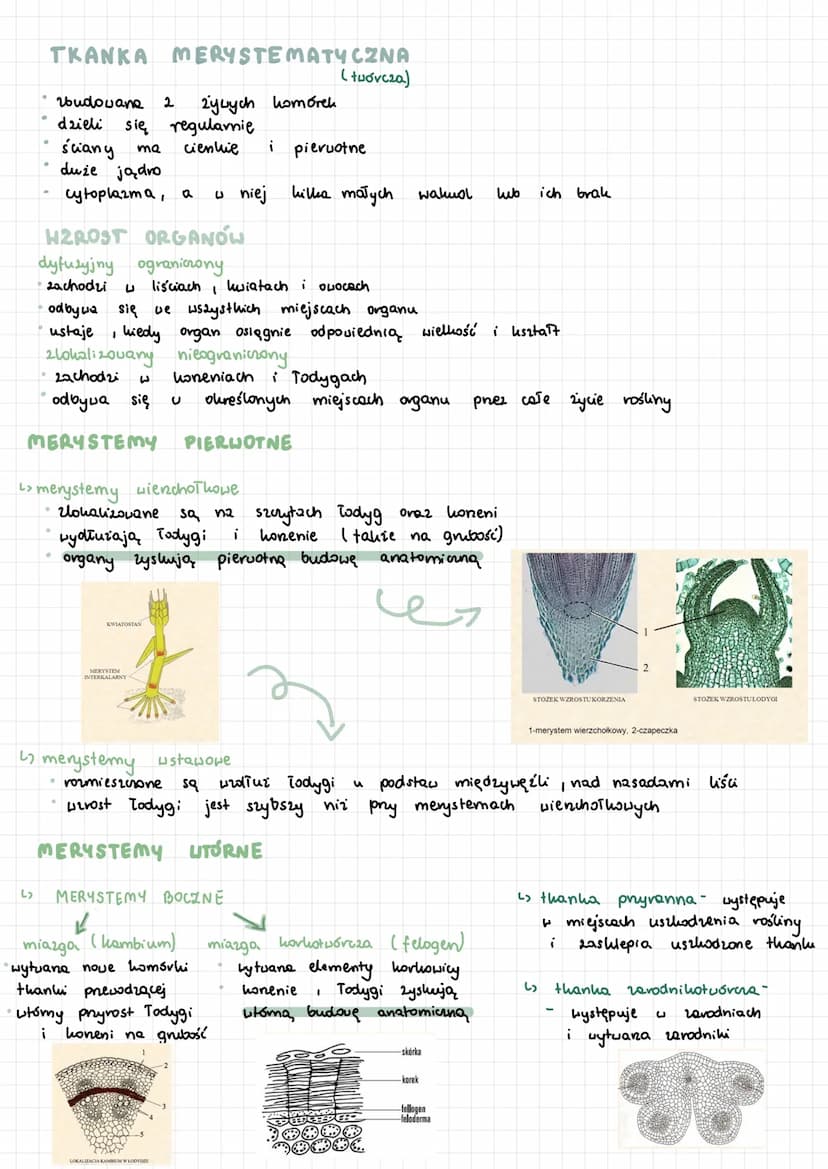 TKANKA MERYSTEMATYCZNA
(twórcza)
zbudowana z żywych komórek
dzieli się regularnie
ściany ma cienkie i pierwotne
duże jądro
cytoplazma, a w niej kilka małych wakuol lub ich brak
WZROST ORGANÓW
dyfuzyjny ograniczony
zachodzi w liściach, kwiatach i owocach
odbywa się we wszystkich miejscach organu
ustaje, kiedy organ osiągnie odpowiednią wielkość i kształt
zlokalizowany nieograniczony
zachodzi w korzeniach i łodygach
odbywa się w określonych miejscach organu przez całe życie rośliny
MERYSTEMY PIERWOTNE
↳ merystemy wierzchołkowe
zlokalizowane są na szczytach łodyg oraz korzeni
wydłużają łodygi i korzenie (także na grubość)
organy zyskują pierwotną budowę anatomiczną
KWIATOSTAN
MERYSTEM
INTERKALARNY
1
2
STOŻEK WZROSTU KORZENIA
STOŻEK WZROSTU ŁODYGI
1-merystem wierzchołkowy, 2-czapeczka
↳ merystemy wstawowe
rozmieszczone są wzdłuż łodygi u podstaw międzywęźli, nad nasadami liści
wzrost łodygi jest szybszy niż przy merystemach wierzchołkowych
MERYSTEMY WTÓRNE
↳ MERYSTEMY BOCZNE
miazga (kambium)
wytwarza nowe komórki
tkanki przewodzącej
wtórny przyrost łodygi
i korzeni na grubość
1
2
3
4
5
LOKALIZACJA KAMBIUM W ŁODYDZE
miazga korkotwórcza (felogen)
wytwarza elementy korkowicy
korzenie, łodygi zyskują
wtórną budowę anatomiczną
skórka
korek
fellogen
feloderma
↳ tkanka przyranna - występuje
w miejscach uszkodzenia rośliny
i zasklepia uszkodzone tkanki
↳ tkanka zarodnikotwórcza -
- występuje w zarodniach
i wytwarza zarodniki